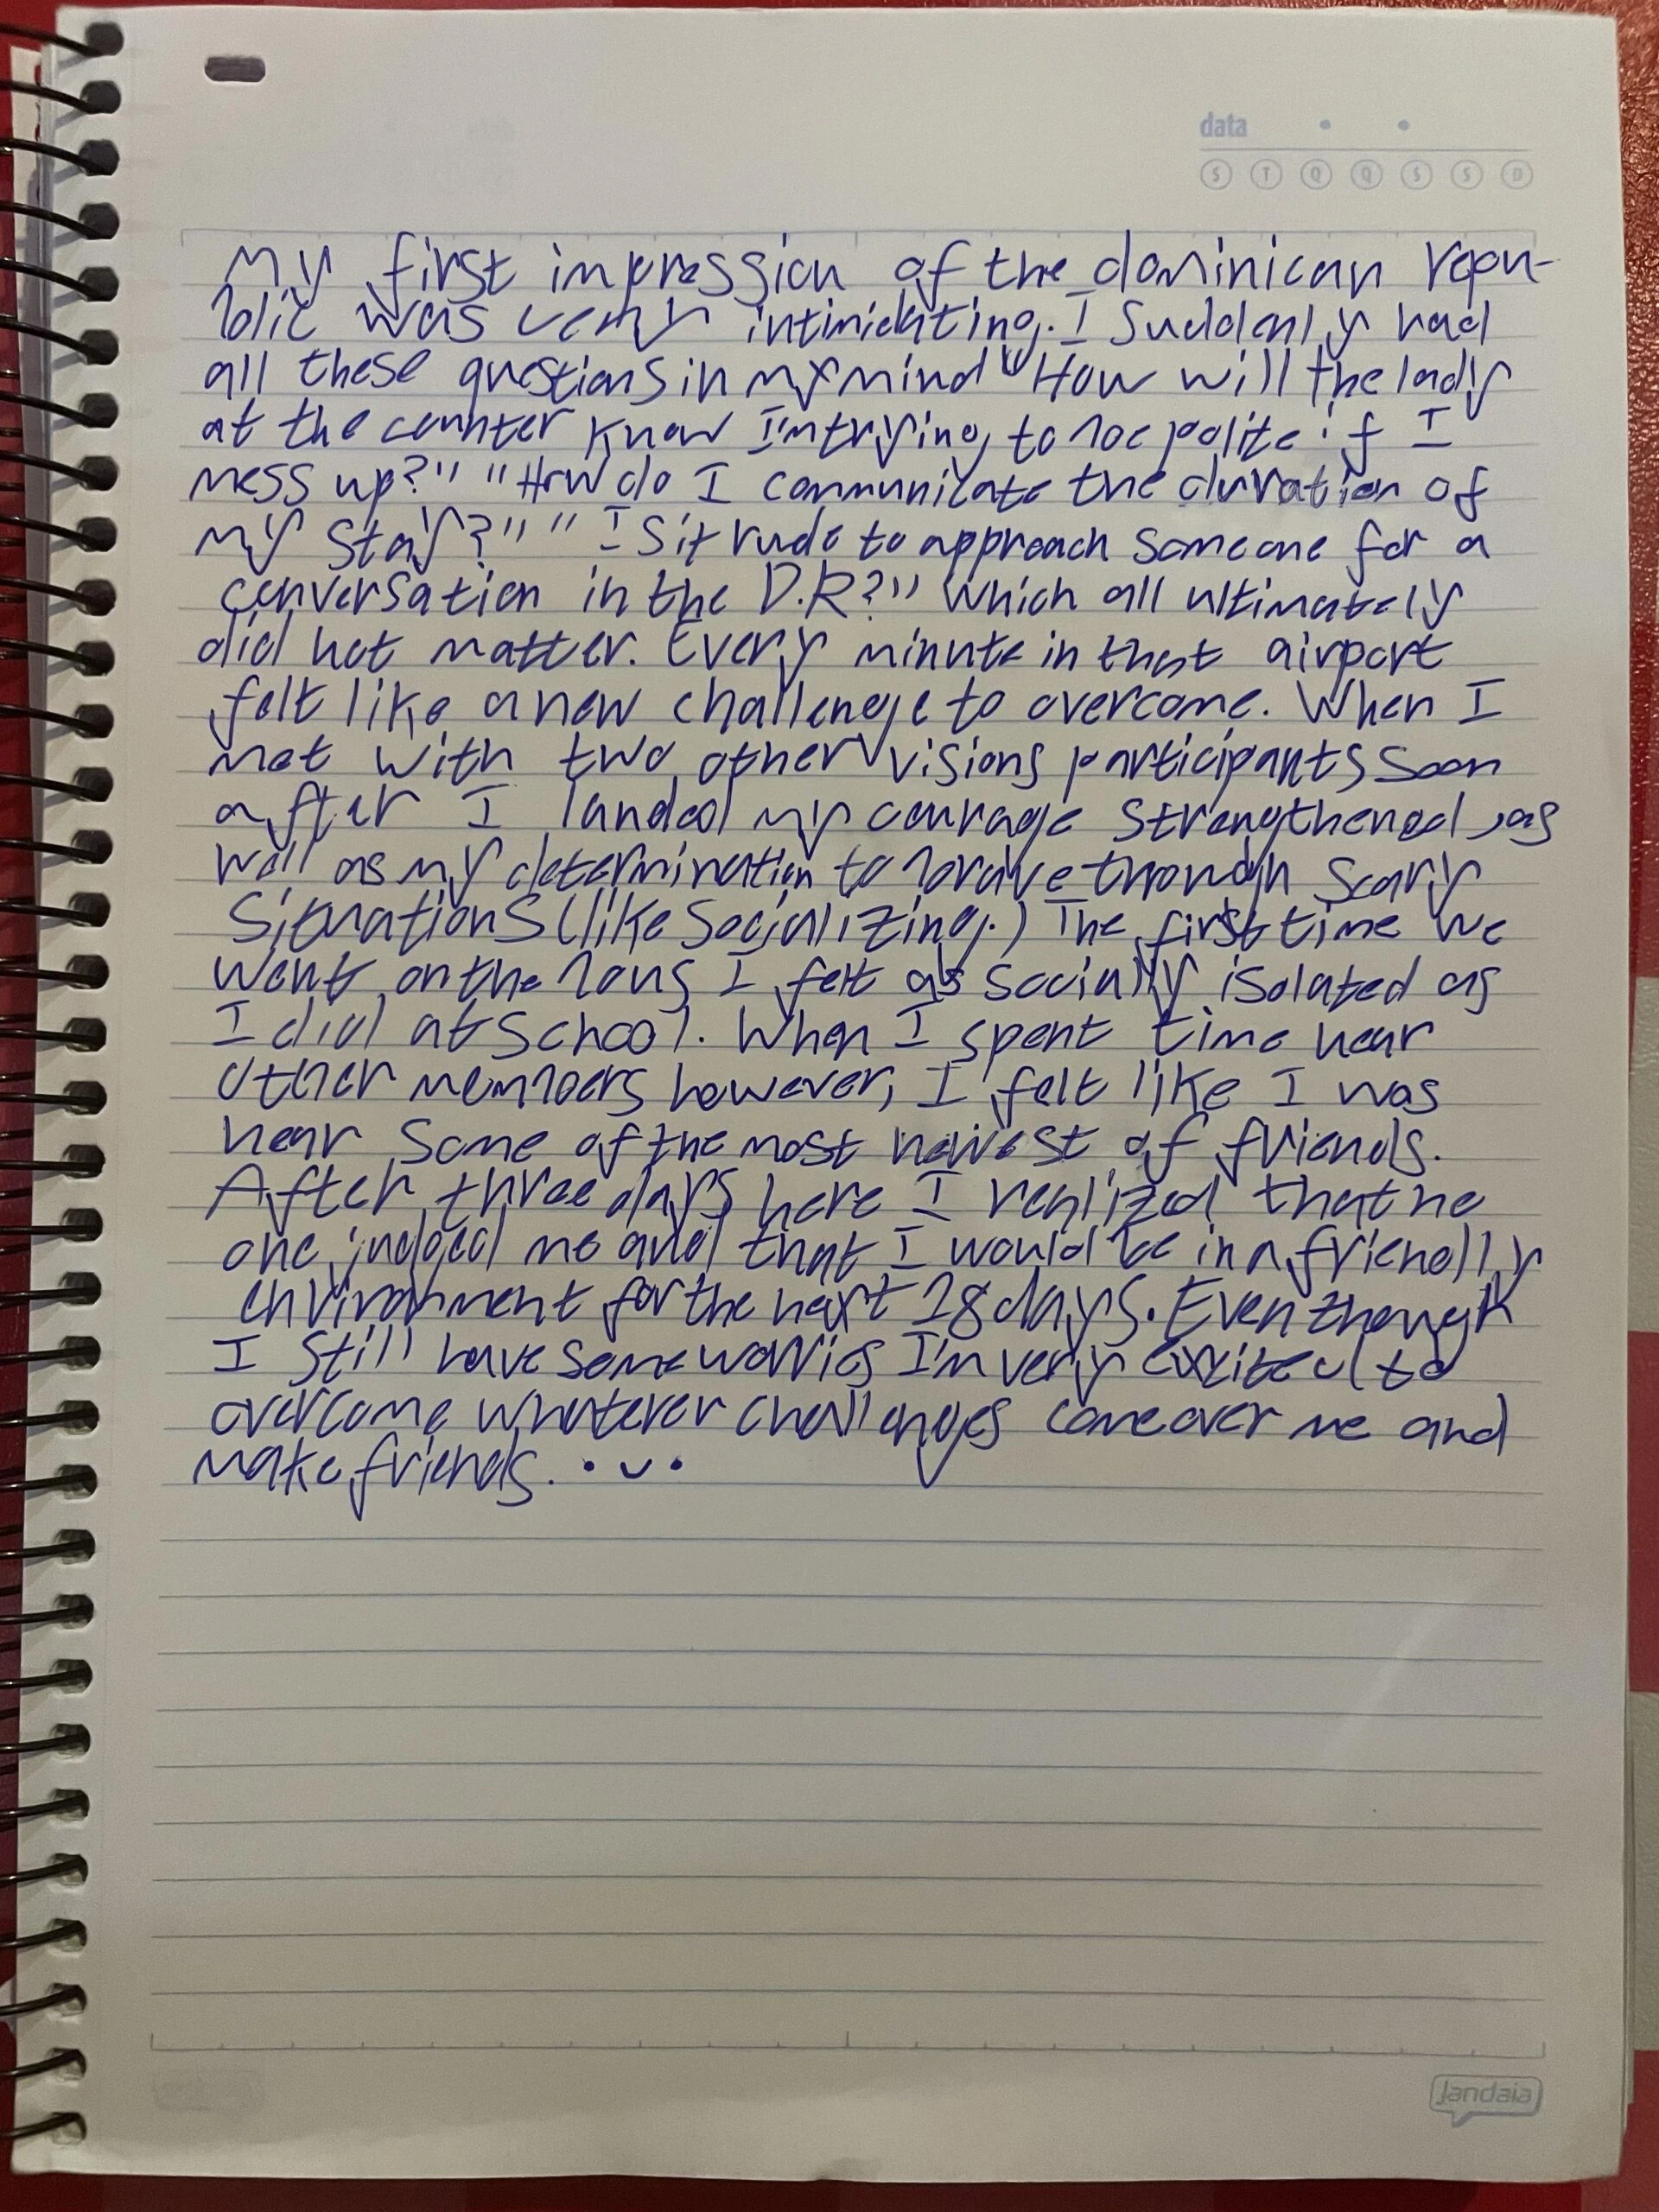 data
S T Q Q S S D
My first impression of the dominican repu-
blic was very intimidating. I suddenly had
all these questions in my mind "How will the lady
at the counter know I'm trying to be polite if I
mess up?" "How do I communicate the duration of
my stay?" "Is it rude to approach someone for a
conversation in the D.R?" Which all ultimately
did not matter. Every minute in that airport
felt like a new challenge to overcome. When I
met with two other visions participants soon
after I landed my courage strengthened, as
well as my determination to brave through scary
situations (like socializing.) The first time we
went on the bus I felt as socially isolated as
I did at school. When I spent time near
other members however, I felt like I was
near some of the most of friends.
After three days here I realized that no
one judged me and that I would be in a friendly
environment for the next 18 days. Even though
I still have some worries I'm very excited to
overcome whatever challenges come over me and
make friends. •ᴗ•
Jandaia